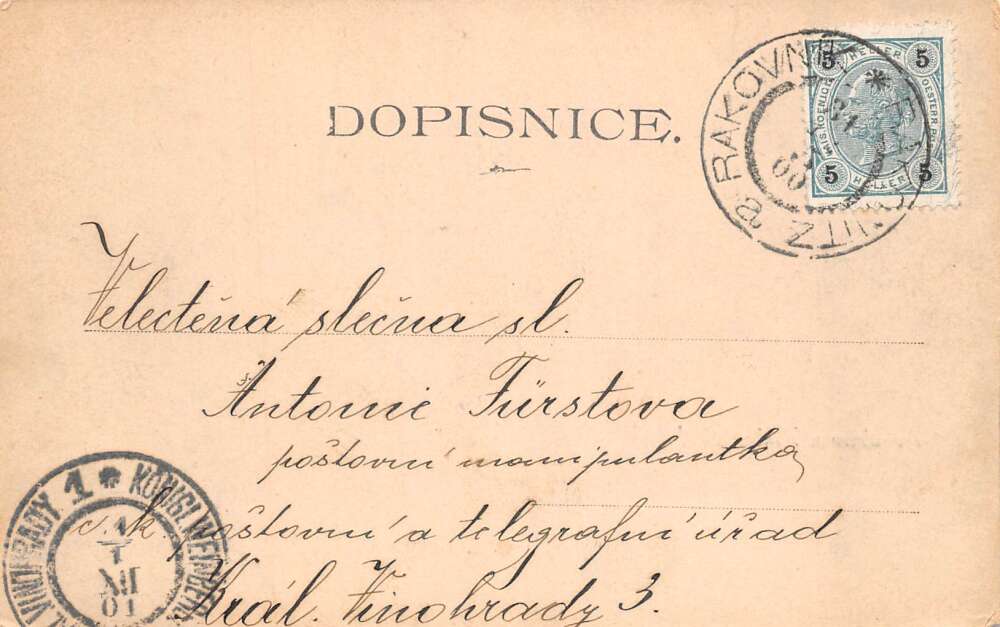 DOPISNICE.
5 HELLER 5
5 HELLER 5
RAKOVNÍK * RAKONITZ
31
00
Velectěná slečna sl.
Antonie Fürstova
poštovní manipulantka
c. k. poštovní a telegrafní úřad
Král. Vinohrady 3.
KRÁL. VINOHRADY 1 * KÖNIGL. WEINBERGE
1
1
XII
01